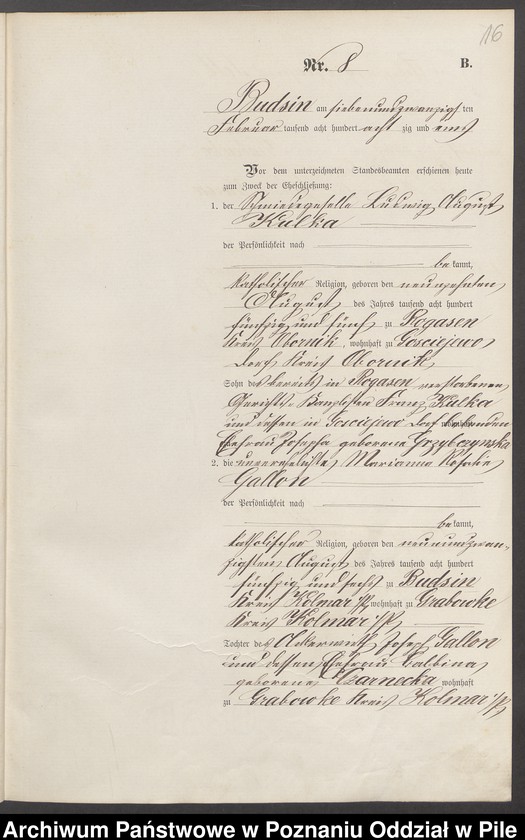 16
Nr. 8 B.
Budsin am siebenundzwanzigsten
Februar tausend acht hundert acht zig und eins
Vor dem unterzeichneten Standesbeamten erschienen heute
zum Zweck der Eheschließung:
1. der Schmiedegeselle Ludwig August
Kulka
der Persönlichkeit nach
be kannt,
katholischer Religion, geboren den neunzehnten
August des Jahres tausend acht hundert
fünfzig und fünf zu Rogasen
Kreis Obornik, wohnhaft zu Gosciejewo
Dorf Kreis Obornik
Sohn des bereits in Rogasen verstorbenen
Gerichts-Kanzlisten Franz Kulka
und dessen in Gosciejewo Dorf lebenden
Ehefrau Josepha geborene Grzybczynska
2. die unverehelichte Marianna Rosalie
Gallon
der Persönlichkeit nach
be kannt,
katholischer Religion, geboren den neunundzwan-
zigsten August des Jahres tausend acht hundert
fünfzig und sechs zu Budsin
Kreis Kolmar i/P, wohnhaft zu Grabowke
Kreis Kolmar i/P
Tochter des Ackerwirth Joseph Gallon
und dessen Ehefrau Balbina
geborene Czarnecka wohnhaft
zu Grabowke Kreis Kolmar i/P
Archiwum Państwowe w Poznaniu Oddział w Pile